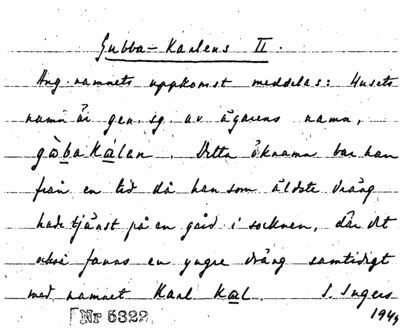 Gubba-Karlens II.
Ang. namnets uppkomst meddelas: Husets
namn är gen. sg. av ägarens namn,
gòbakálan. Detta öknamn bar han
från en tid då han som äldste dräng
hade tjänst på en gård i socknen, där det
också fanns en yngre dräng samtidigt
med namnet Karl Kal. I. Ingers
Nr 5322 1949